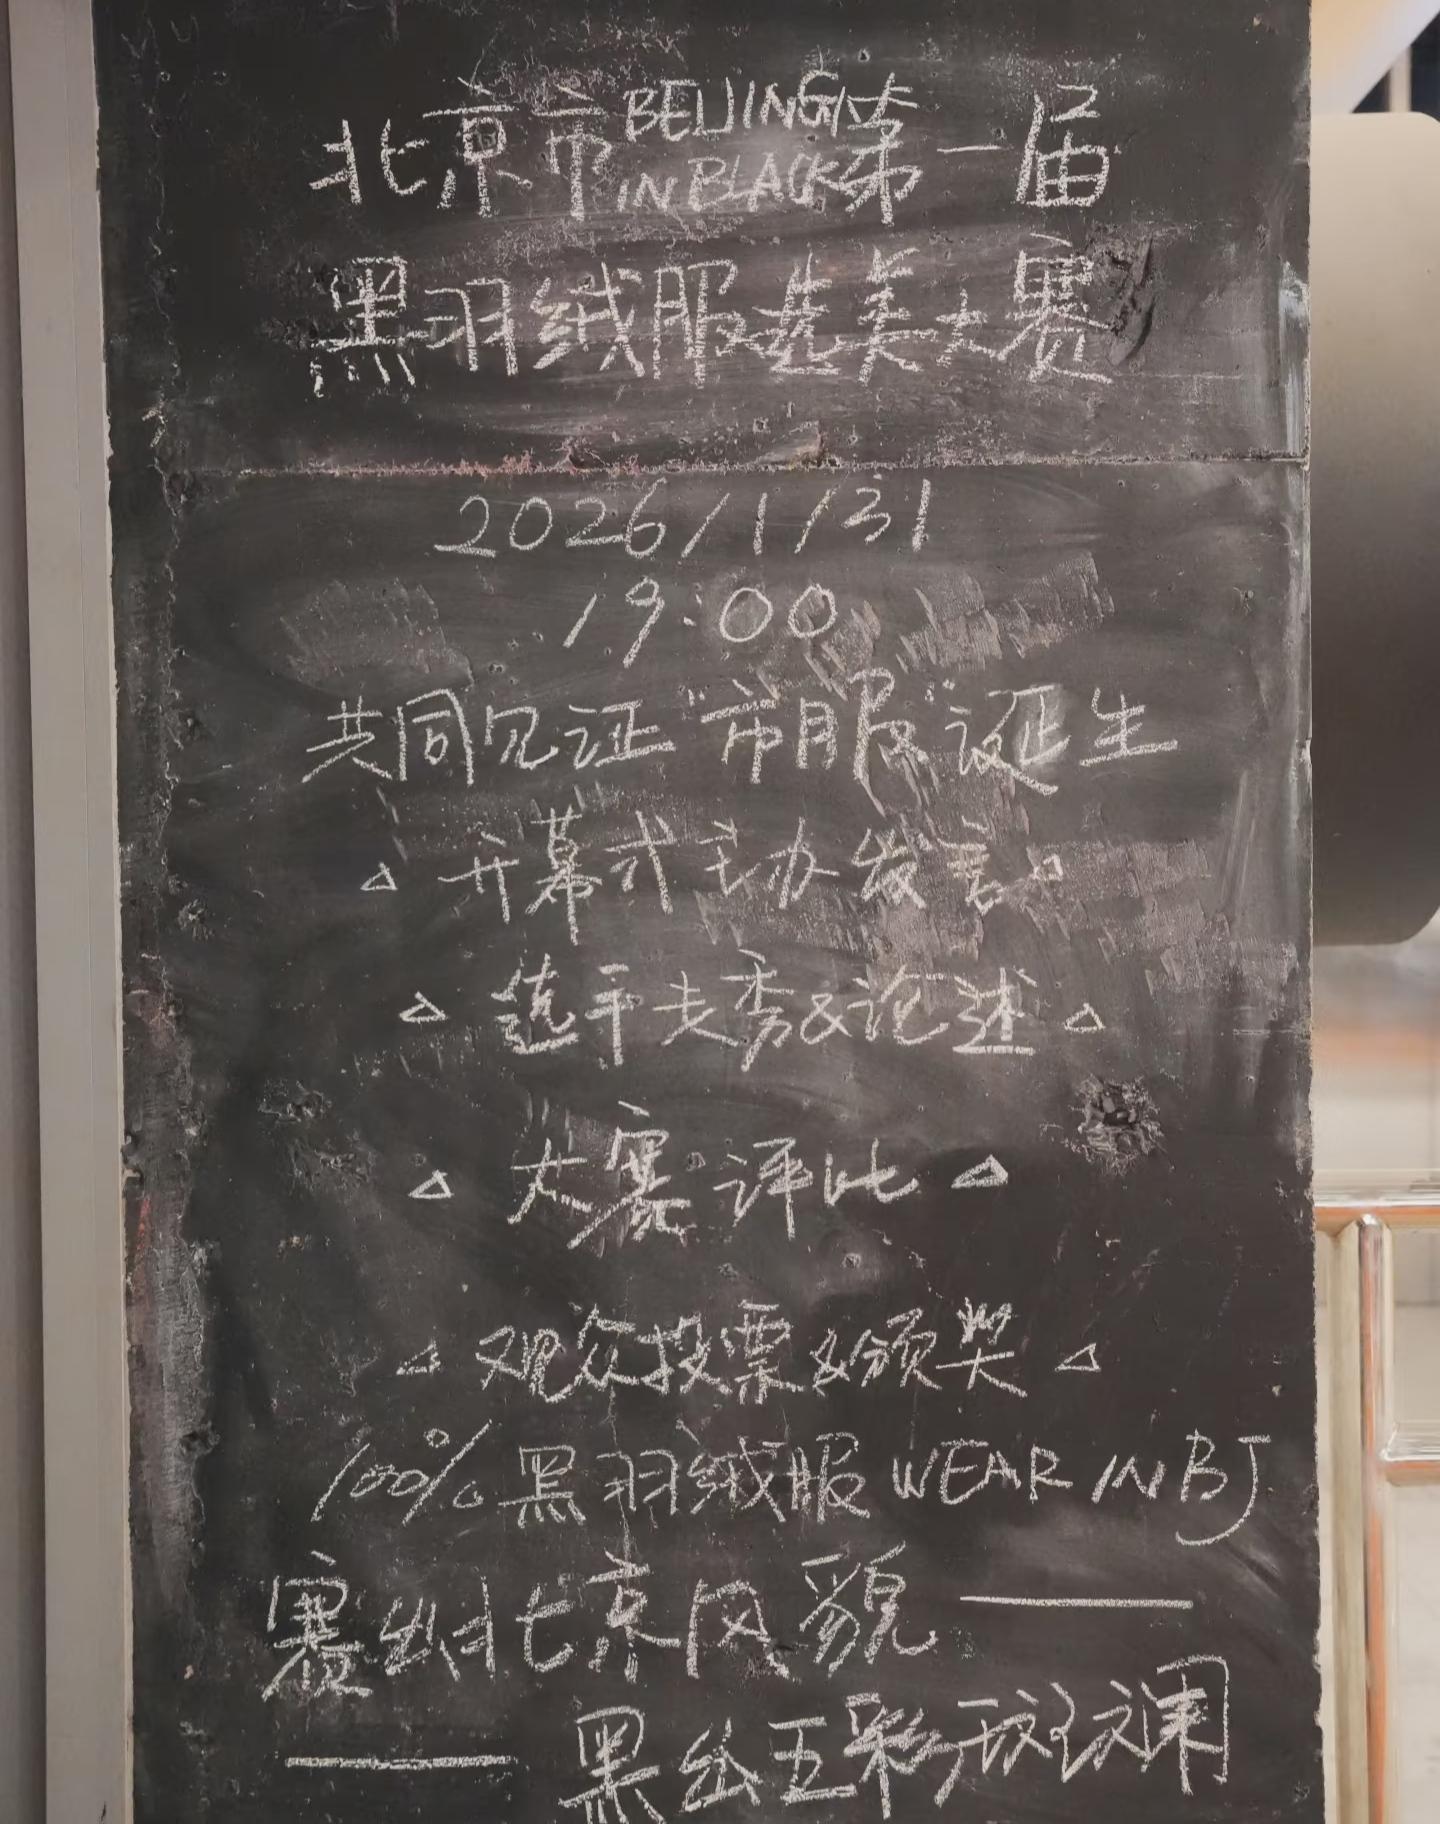 北京市 BEIJING IN BLACK 第一届
黑羽绒服选美大赛
2026/1/31
19:00
共同见证“市服”诞生
△ 开幕式主办发言
△ 选手走秀&论述 △
△ 大赛评比 △
△ 观众投票&颁奖 △
100% 黑羽绒服 WEAR IN BJ
赛出北京风貌 ——
—— 黑出五彩斑斓